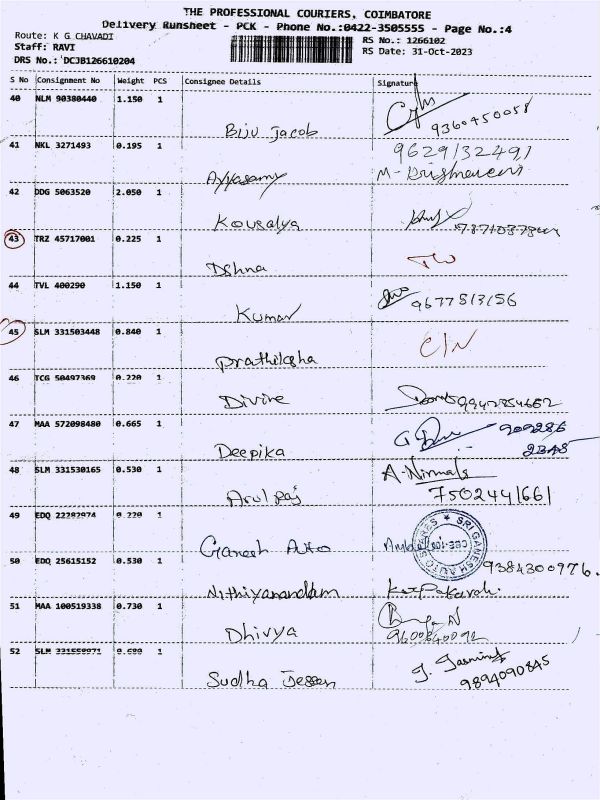 THE PROFESSIONAL COURIERS, COIMBATORE
Delivery Runsheet - PCK - Phone No.:0422-3505555 - Page No.:4
Route: K G CHAVADI
Staff: RAVI
DRS No.: DCJB126610204
RS No.: 1266102
RS Date: 31-Oct-2023
S No Consignment No Weight PCS Consignee Details Signature
40 NLM 90380440 1.150 1
Biju Jacob 9360450058
41 NKL 3271493 0.195 1 9629132491
Ayyasamy M-
42 DDG 5063520 2.050 1
Kousalya
43 TRZ 45717001 0.225 1
Dshna
44 TVL 400290 1.150 1
Kumar 9677513156
45 SLM 331503448 0.840 1 C/N
Prathiksha
46 TCG 50497369 0.220 1
Divine
47 MAA 572098480 0.665 1 909286
Deepika 2345
48 SLM 331530165 0.530 1 A-Nirmals
Arulraj 7502441661
49 EDQ 22282974 0.220 1
Ganesh Auto SRI GANESH AUTO
50 EDQ 25615152 0.530 1 9384300976.
Nithiyanandam
51 MAA 100519338 0.730 1
Dhivya 9600840092
52 SLM 331550971 0.680 1 J. Jasmine
Sudha Jessen 9894090845